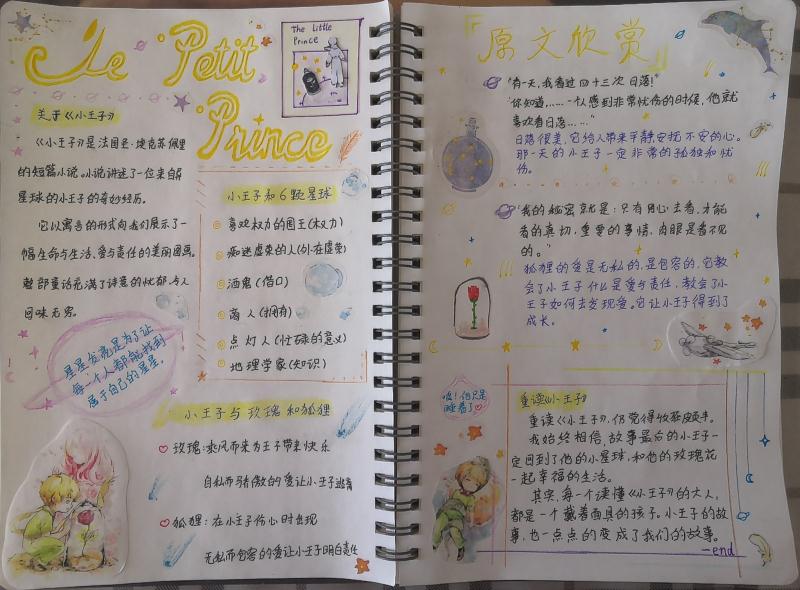 Le Petit
Prince
The Little
Prince
关于《小王子》
《小王子》是法国圣·埃克苏佩里
的短篇小说。小说讲述了一位来自
星球的小王子的奇妙经历。
它以寓言的形式向我们展示了一
幅生命与生活、爱与责任的美丽图画。
整部童话充满了诗意的忧郁,令人
回味无穷。
星星发亮是为了让
每一个人都能找到
属于自己的星星。
小王子和6颗星球
喜欢权力的国王(权力)
痴迷虚荣的人(外在虚荣)
酒鬼(借口)
商人(拥有)
点灯人(忙碌的意义)
地理学家(知识)
小王子与玫瑰和狐狸
玫瑰:乘风而来为王子带来快乐
自私而骄傲的爱让小王子逃离
狐狸:在小王子伤心时出现
无私而包容的爱让小王子明白责任
「原文欣赏」
"有一天,我看过四十三次日落!"
"你知道,……一个人感到非常忧伤的时候,他就
喜欢看日落……"
日落很美,它给人带来平静,安抚不安的心。
那一天的小王子一定非常的孤独和忧
伤。
"我的秘密就是:只有用心去看,才能
看的真切,重要的事情,肉眼是看不见
的。"
狐狸的爱是无私的,是包容的,它教
会了小王子什么是爱与责任,教会了小
王子如何去发现爱。它让小王子得到了
成长。
嘘!他只是
睡着了
重读《小王子》
重读《小王子》,仍觉得收获颇丰。
我始终相信,故事最后的小王子一
定回到了他的小星球,和他的玫瑰花
一起幸福的生活。
其实,每一个读懂《小王子》的大人,
都是一个戴着面具的孩子。小王子的故
事,也一点点的变成了我们的故事。
—end